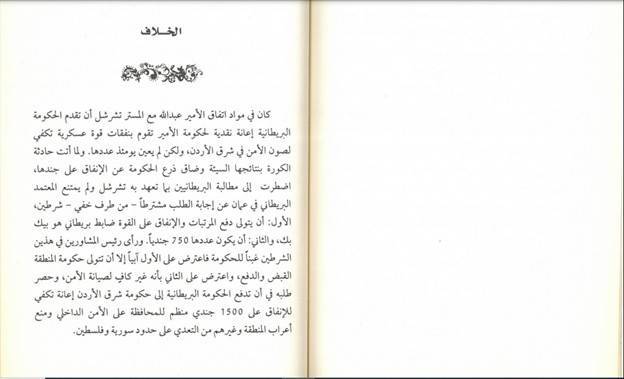 الخلاف
كان في مواد اتفاق الأمير عبدالله مع المستر تشرشل أن تقدم الحكومة
البريطانية إعانة نقدية لحكومة الأمير تقوم بنفقات قوة عسكرية تكفي
لصون الأمن في شرق الأردن، ولكن لم يعين يومئذ عددها. ولما أتت حادثة
الكورة بنتائجها السيئة وضاق ذرع الحكومة عن الإنفاق على جندها،
اضطرت إلى مطالبة البريطانيين بما تعهد به تشرشل ولم يمتنع المعتمد
البريطاني في عمان عن إجابة الطلب مشترطاً – من طرف خفي – شرطين،
الأول: أن يتولى دفع المرتبات والإنفاق على القوة ضابط بريطاني هو بيك
بك، والثاني: أن يكون عددها 750 جندياً. ورأى رئيس المشاورين في هذين
الشرطين غبناً للحكومة فاعترض على الأول آبياً إلا أن تتولى حكومة المنطقة
القبض والدفع، واعترض على الثاني بأنه غير كافٍ لصيانة الأمن، وحصر
طلبه في أن تدفع الحكومة البريطانية إلى حكومة شرق الأردن إعانة تكفي
للإنفاق على 1500 جندي منظم للمحافظة على الأمن الداخلي ومنع
أعراب المنطقة وغيرهم من التعدي على حدود سورية وفلسطين.